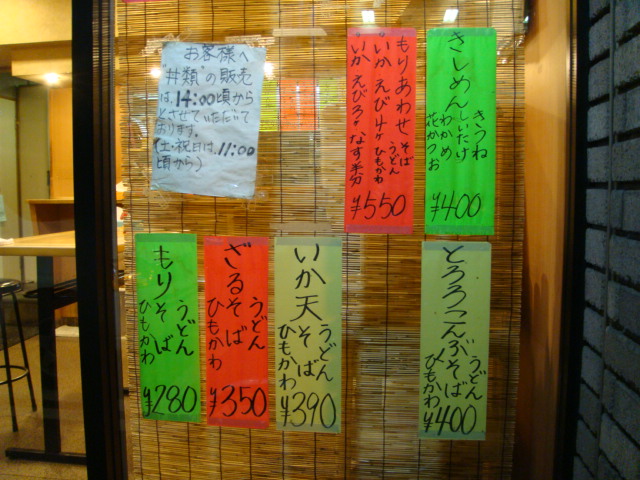 お客様へ
"丼類"の販売
は、14:00頃から
とさせていただいて
おります。
(土・祝日は、11:00
頃から)
もりあわせ そば うどん ひもかわ
いか えび
いか えび なす 半分
¥550
きしめん
きつね
しいたけ
わかめ
花かつお
¥400
もりそば
うどん
ひもかわ
¥280
ざるそば
うどん
ひもかわ
¥350
いか天そば
うどん
ひもかわ
¥390
とろろこんぶそば
うどん
ひもかわ
¥400